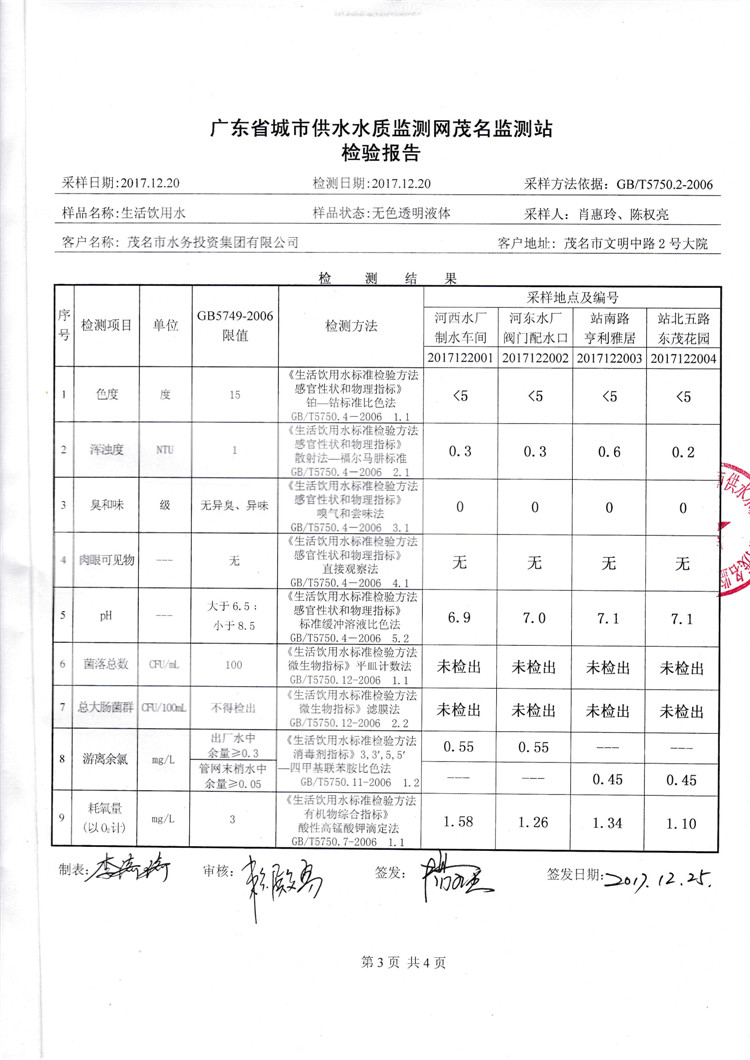 广东省城市供水水质监测网茂名监测站
检验报告
采样日期:2017.12.20 检测日期:2017.12.20 采样方法依据: GB/T5750.2-2006
样品名称:生活饮用水 样品状态:无色透明液体 采样人: 肖惠玲、陈权亮
客户名称: 茂名市水务投资集团有限公司 客户地址: 茂名市文明中路2号大院
检 测 结 果
序号 检测项目 单位 GB5749-2006 限值 检测方法 采样地点及编号
河西水厂 河东水厂 站南路 站北五路
制水车间 阀门配水口 亨利雅居 东茂花园
2017122001 2017122002 2017122003 2017122004
《生活饮用水标准检验方法
感官性状和物理指标》
1 色度 度 15 铂—钴标准比色法 <5 <5 <5 <5
GB/T5750.4-2006 1.1
《生活饮用水标准检验方法
感官性状和物理指标》
2 浑浊度 NTU 1 散射法—福尔马肼标准 0.3 0.3 0.6 0.2
GB/T5750.4-2006 2.1
《生活饮用水标准检验方法
感官性状和物理指标》
3 臭和味 级 无异臭、异味 嗅气和尝味法 0 0 0 0
GB/T5750.4-2006 3.1
《生活饮用水标准检验方法
感官性状和物理指标》
4 肉眼可见物 --- 无 直接观察法 无 无 无 无
GB/T5750.4-2006 4.1
《生活饮用水标准检验方法
感官性状和物理指标》
5 pH --- 大于6.5; 小于8.5 标准缓冲溶液比色法 6.9 7.0 7.1 7.1
GB/T5750.4-2006 5.2
《生活饮用水标准检验方法
6 菌落总数 CFU/mL 100 微生物指标》平皿计数法 未检出 未检出 未检出 未检出
GB/T5750.12-2006 1.1
《生活饮用水标准检验方法
7 总大肠菌群 CFU/100mL 不得检出 微生物指标》滤膜法 未检出 未检出 未检出 未检出
GB/T5750.12-2006 2.2
8 游离余氯 mg/L 出厂水中 余量≥0.3 《生活饮用水标准检验方法 0.55 0.55 --- ---
消毒剂指标》3,3′,5,5′
管网末梢水中 余量≥0.05 —四甲基联苯胺比色法 --- --- 0.45 0.45
GB/T5750.11-2006 1.2
《生活饮用水标准检验方法
有机物综合指标》
9 耗氧量 (以O₂计) mg/L 3 酸性高锰酸钾滴定法 1.58 1.26 1.34 1.10
GB/T5750.7-2006 1.1
制表: 审核: 签发: 签发日期: 2017.12.25.
第3页 共4页